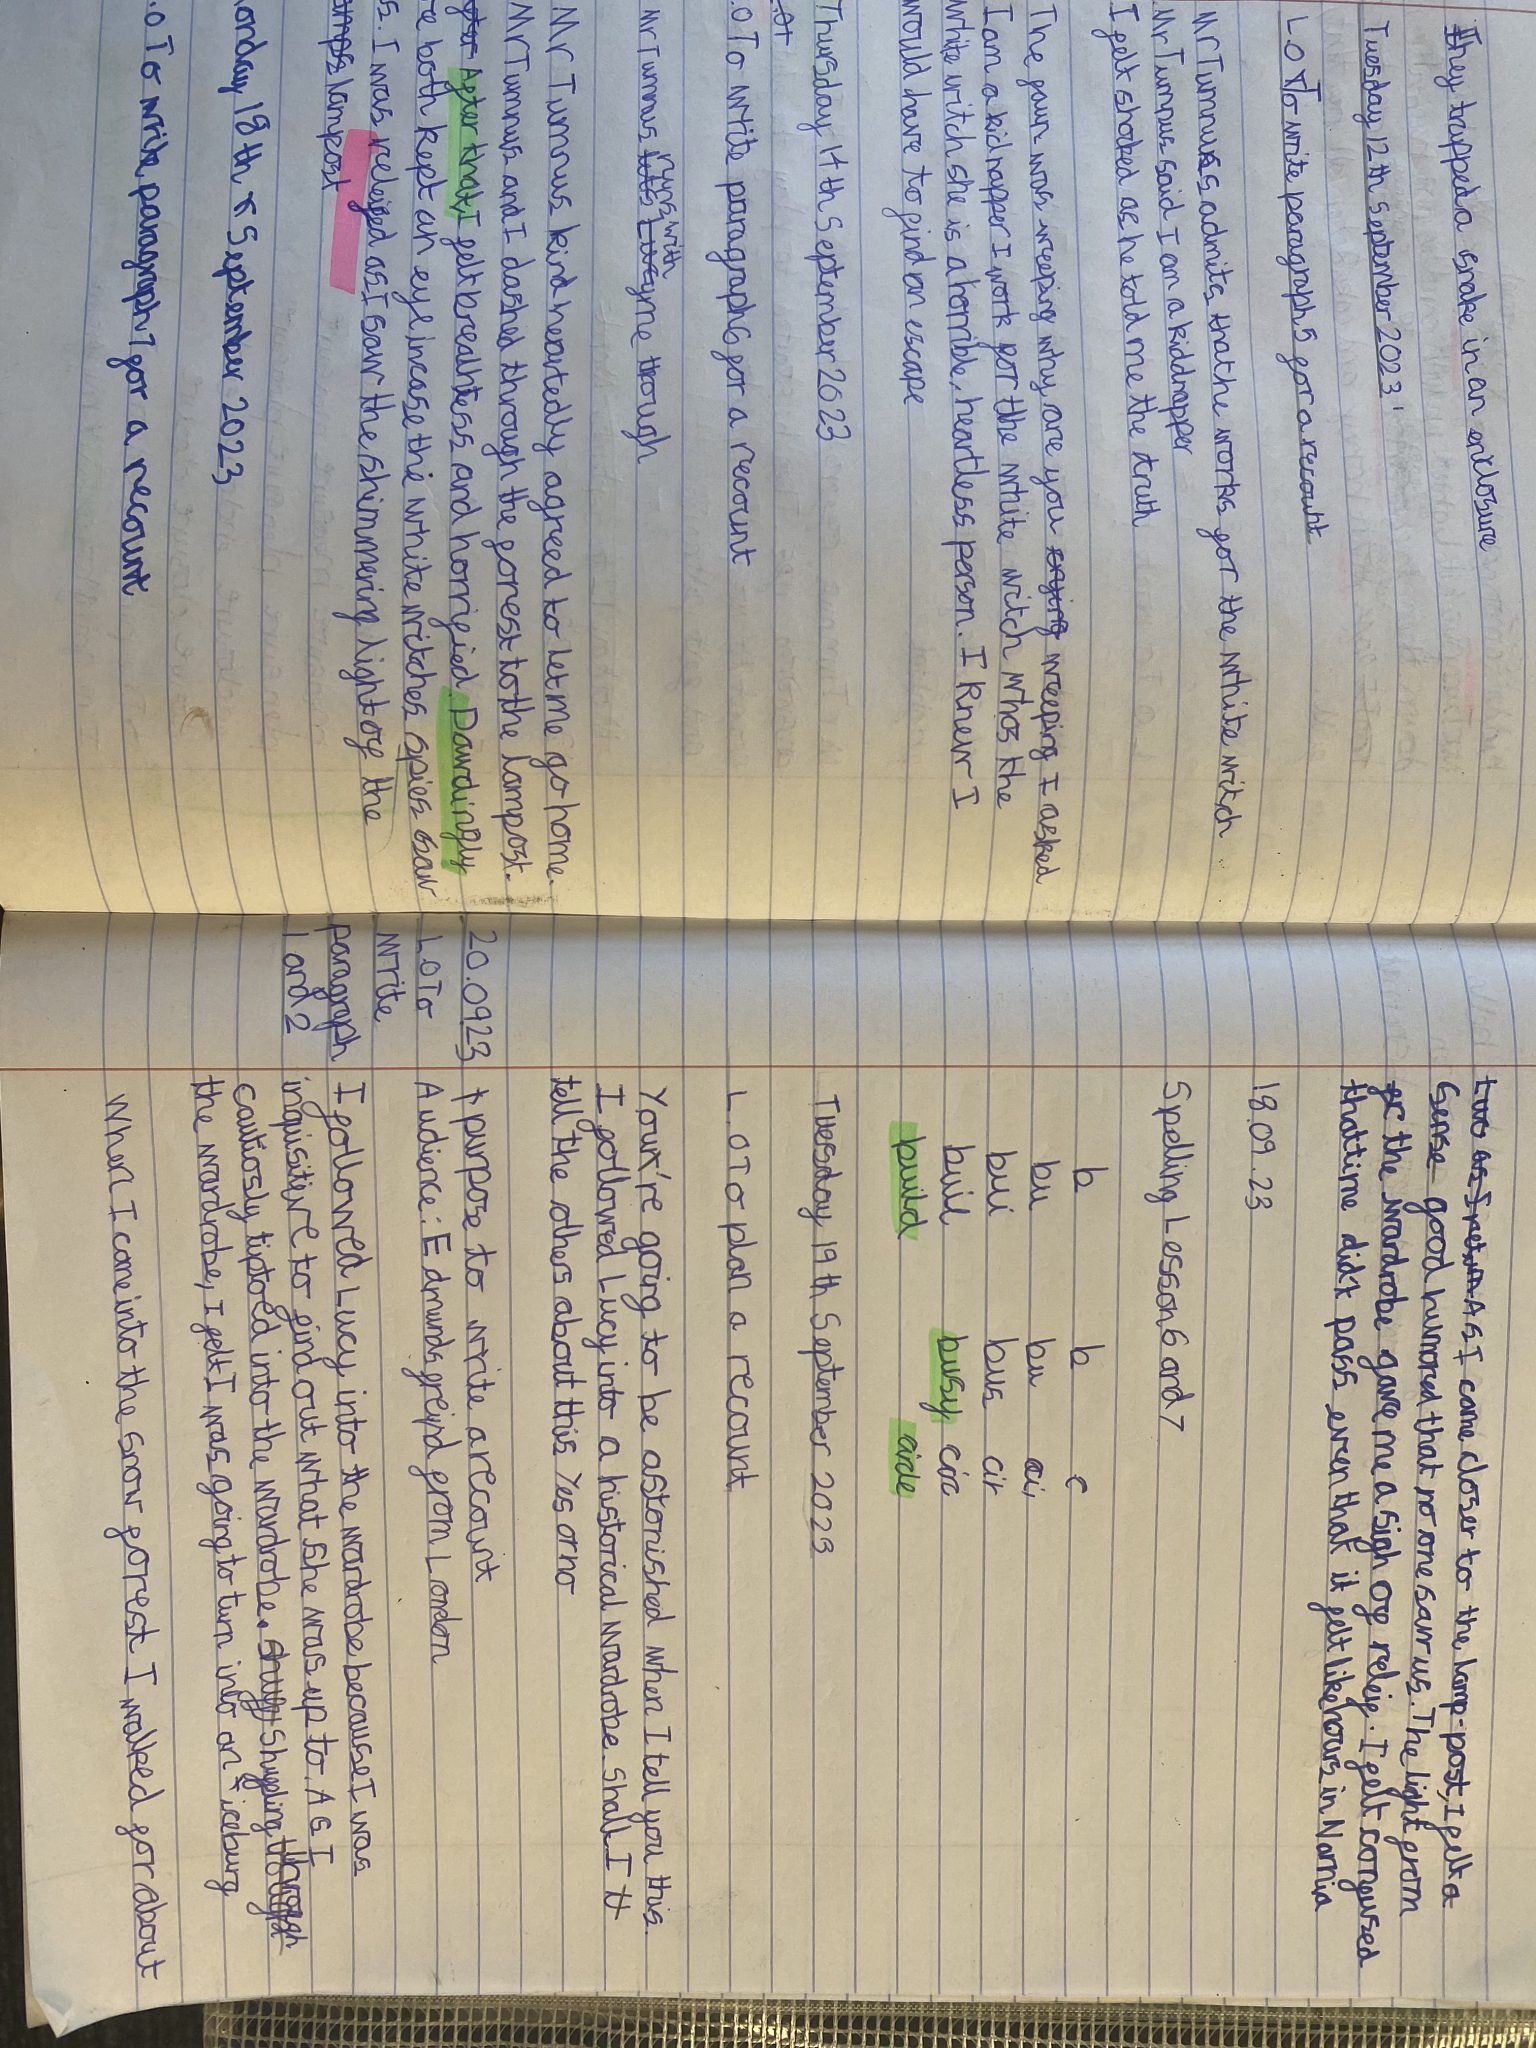 They trapped a snake in an enclosure
Tuesday 12th September 2023
LO To write paragraph 5 for a recount
Mr Tumnus admits that he works for the white witch
Mr Tumnus said I am a kiddnapper
I felt shocked as he told me the truth
The faun was weeping why are you crying weeping I asked
I am a kidnapper I work for the white witch whos the
white witch she is a horrible, heartless person. I knew I
would have to find an escape
Thursday 14th September 2023
.O To write paragraph 6 for a recount
Mr Tumnus runs with
me through
Mr Tumnus kind heartedly agreed to let me go home.
Mr Tumnus and I dashed through the forest to the lampost.
After that, I felt breathless and horrified. Dawdingly
re both kept an eye incase the white witches spies saw
s. I was releifed as I saw the shimmering light off the
lampost
onday 18th September 2023
.O To write paragraph 7 for a recount
As I came closer to the lamp-post, I felt a
sense good humored that no one saw us. The light from
the wardrobe gave me a sigh off releif. I felt confused
that time didt pass even that it felt like hours in Narnia
18.09.23
Spelling Lesson 6 and 7
b b c
bu bu ci
bui bus cir
buil busy circ
build circle
Tuesday 19th September 2023
L.O To plan a recount
Your're going to be astonished when I tell you this.
I followed Lucy into a historical wardrobe. Shall I
tell the others about this Yes or no
20.0923 purpose to write a recount
LO To Audience: Edmunds freind from London
write
paragraph I followed Lucy into the wardrobe because I was
1 and 2 inquisitive to find out what she was up to. As I
cautiosly tiptoed into the wardrobe. Shuffling through
the wardrobe, I felt I was going to turn into an iceburg
When I came into the snow forest I walked for about